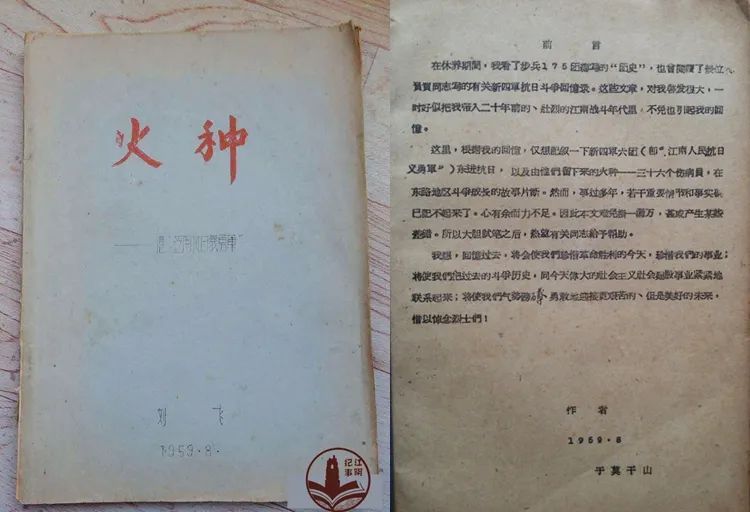 火种
——忆“江南抗日义勇军”
刘 飞
1959.8.
江阴
纪事
前 言
在休养期间，我看了步兵175团编写的“团史”，也曾阅读了几位
負責同志写的有关新四軍抗日斗爭回憶录。这些文章，对我啓发很大，一
时好似把我带入二十年前的、壮烈的江南战斗年代里，不免也引起我的回
憶。
这里，根据我的回憶，仅想記叙一下新四軍六团（即“江南人民抗日
义勇軍”）东进抗日，以及由他們留下来的火种——三十六个伤病員，在
东路地区斗爭成长的故事片断。然而，事过多年，若干重要情节和事实都
已記不起来了。心有余而力不足。因此本文难免挂一漏万，甚或产生某些
差錯。所以大胆試笔之后，热望有关同志給予帮助。
我想，回憶过去，将会使我們珍惜革命胜利的今天，珍惜我們的事业；
将使我們把过去的斗爭历史，同今天偉大的社会主义社会建設事业紧紧地
联系起来；将使我們气势磅礴、勇敢地迎接更艰苦的、但是美好的未来，
借以悼念烈士們！
作 者
1959.8
于莫干山